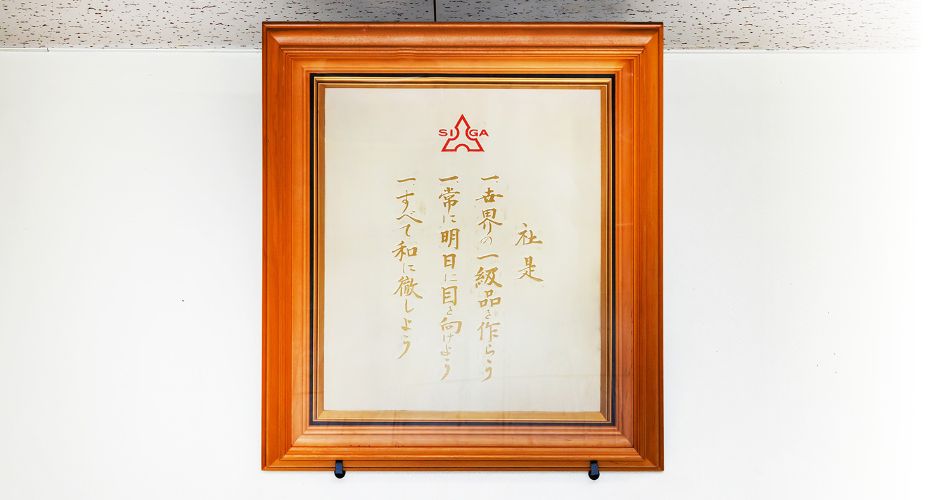 SIGA
社是
一、世界の一級品を作らう
一、常に明日に目を向けよう
一、すべて和に徹しよう